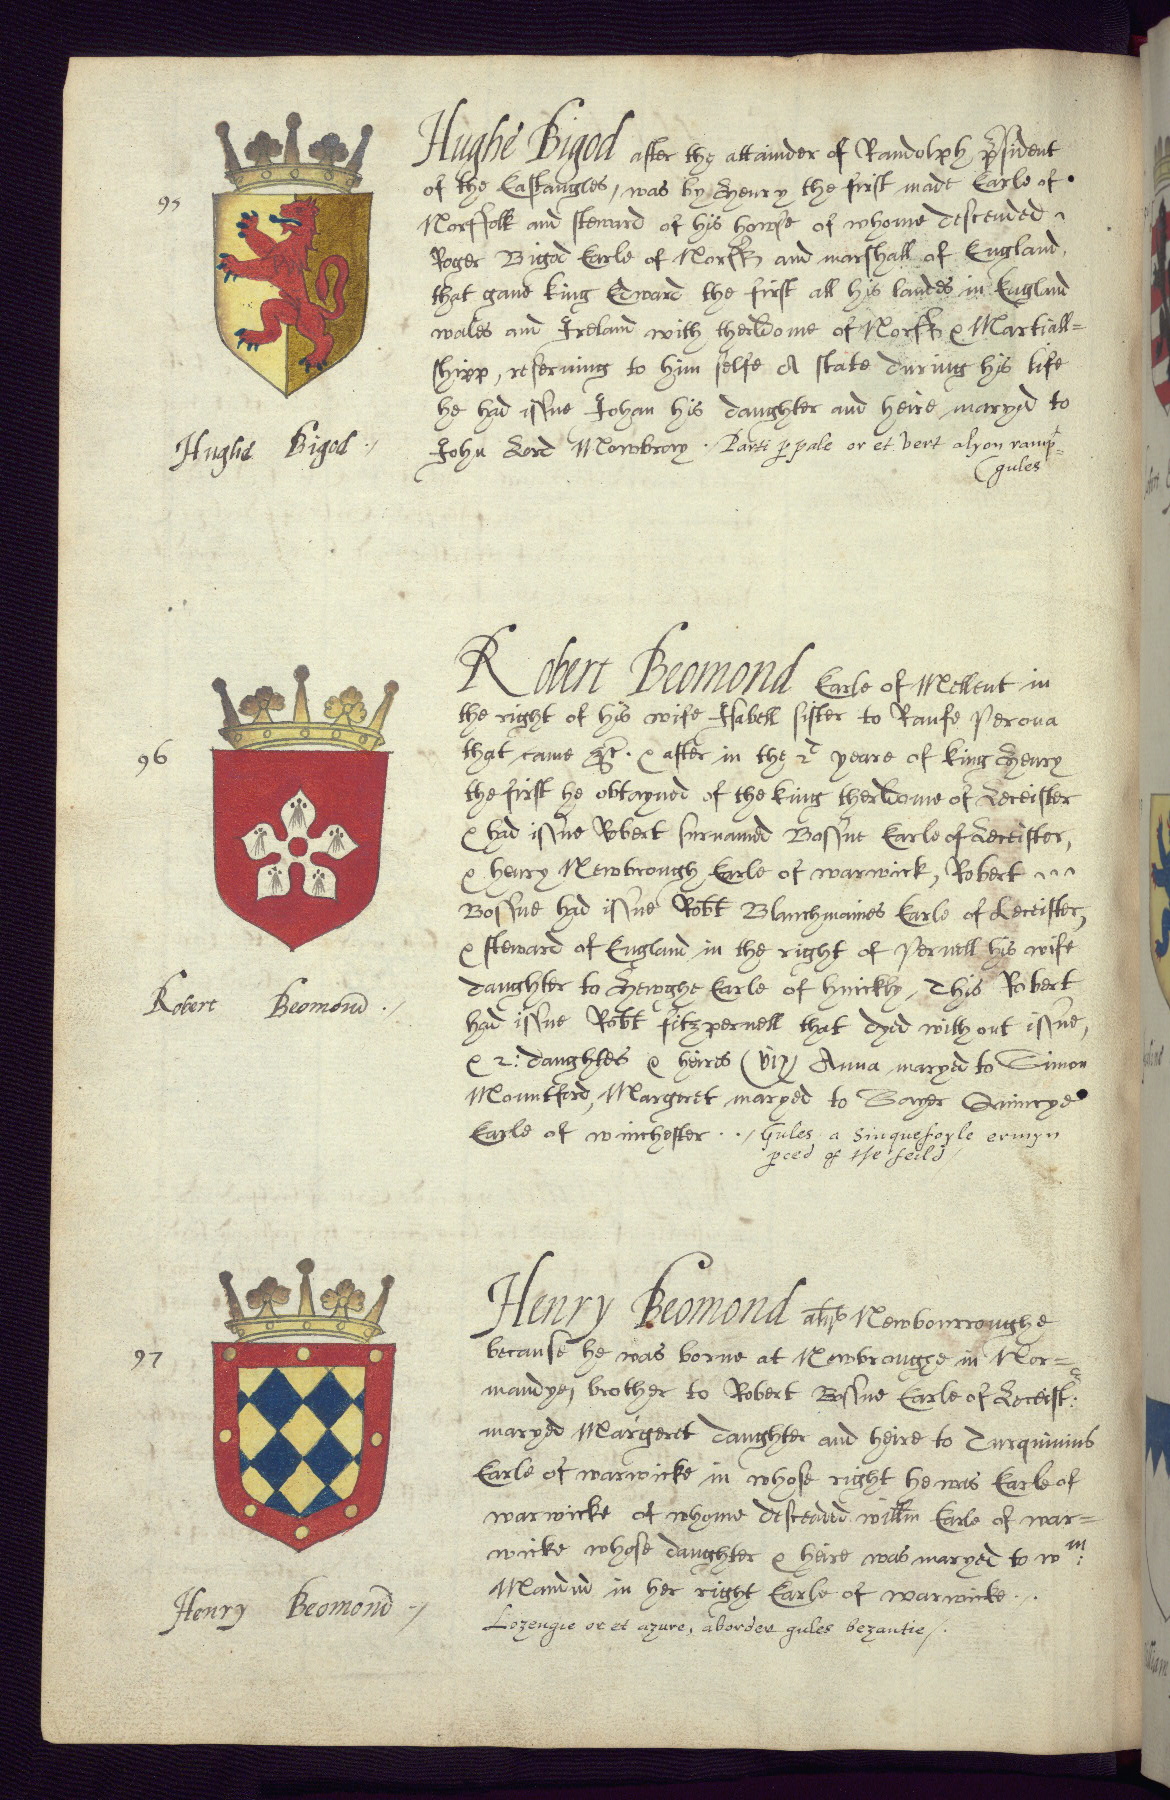 95
Hughe Bigod after the attainder of Randolph p̄sident
of the Eastangles, was by Henry the first made Earle of
Norffolk and steward of his howse of whome descended
Roger Bigod Earle of Norffk and marshall of England,
that gaue king Edward the first all his landes in England
wales and Ireland with therldome of Norffk & Martiall=
shipp, reseruing to him selfe A state during his life
he had issue Johan his daughter and heire maryed to
John Lord Mowbray . Parti p pale or et vert a lyon ramp=
gules
Hughe Bigod ./
96
Robert Beomond Earle of Mellent in
the right of his wife Isabell sister to Raufe Perona
that came &c. & after in the 2d yeare of king Henry
the first he obtayned of the king therldome of Leceister
& had issue Robert surnamed Bossue Earle of Leceister,
& henry Newbrough Earle of warwick, Robert
Bossue had issue Robt Blanchmaines Earle of Leceister,
& steward of England in the right of Pernell his wife
daughter to Hewghe Earle of hinckly, This Robert
had issue Robt fitzpernell that dyed without issue,
& 2: daughtes & heires (viz) Anna maryed to Simon
Mountford, Margeret maryed to Sayer Quincye
Earle of winchester . ./ Gules a Sinquefoyle ermyn
pced of the feild /
Robert Beomond ./
97
Henry Beomond als Newbourroughe
because he was borne at Newbroughe in Nor=
mandye, brother to Robert Bossue Earle of Leceist:
maryed Margeret daughter and heire to Turquinius
Earle of warwicke in whose right he was Earle of
warwicke of whome descended willm Earle of war=
wicke whose daughter & heire was maryed to wm:
Mandud in her right Earle of warwicke . /.
Lozengie or et azure, a border gules bezantie /.
Henry Beomond ./